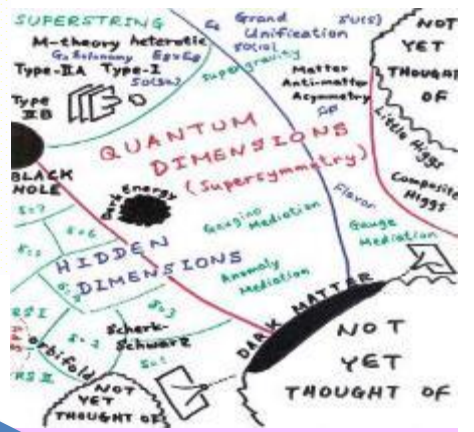 SUPERSTRING
M-theory heterotic
G₂ holonomy E8×E8
Type-IIA Type-I
SO(32)
Type
IIB
E6 Grand SU(5)
Unification
SO(10)
Supergravity
Matter
Anti-matter
Asymmetry
NOT
YET
THOUGHT
OF
Little Higgs
Composite
Higgs
QUANTUM
DIMENSIONS
(Supersymmetry)
BLACK
HOLE
Dark Energy
Flavor
Gaugino
Mediation
Gauge
Mediation
HIDDEN
DIMENSIONS
Anomaly
Mediation
δ=7
δ=6
δ=3
δ=2
δ=1
RS I
orbifold
RS II
Scherk-
Schwarz
DARK MATTER
NOT
YET
THOUGHT OF
NOT
YET
THOUGHT OF